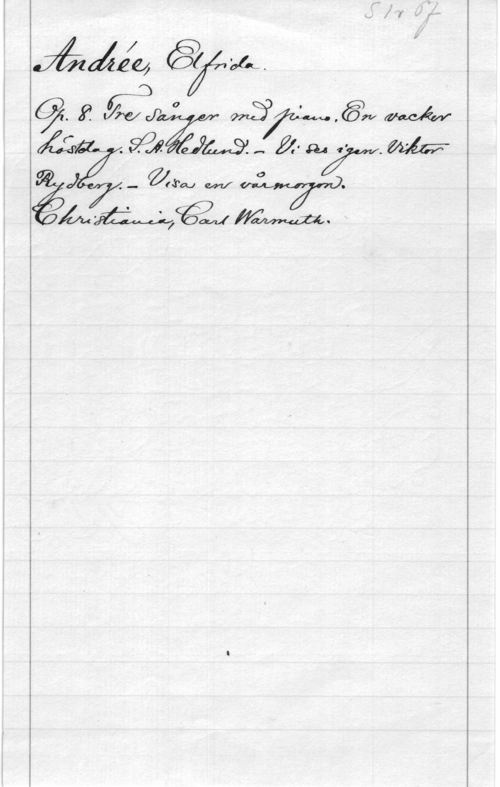 S 1r 67
Andrée, Elfrida.
Op. 8. Tre sånger med piano. En vacker
höstdag. S. A. Hedlund. – Vi ses igen. Viktor
Rydberg. – Visa en vårmorgon.
Christiania, Carl Warmuth.